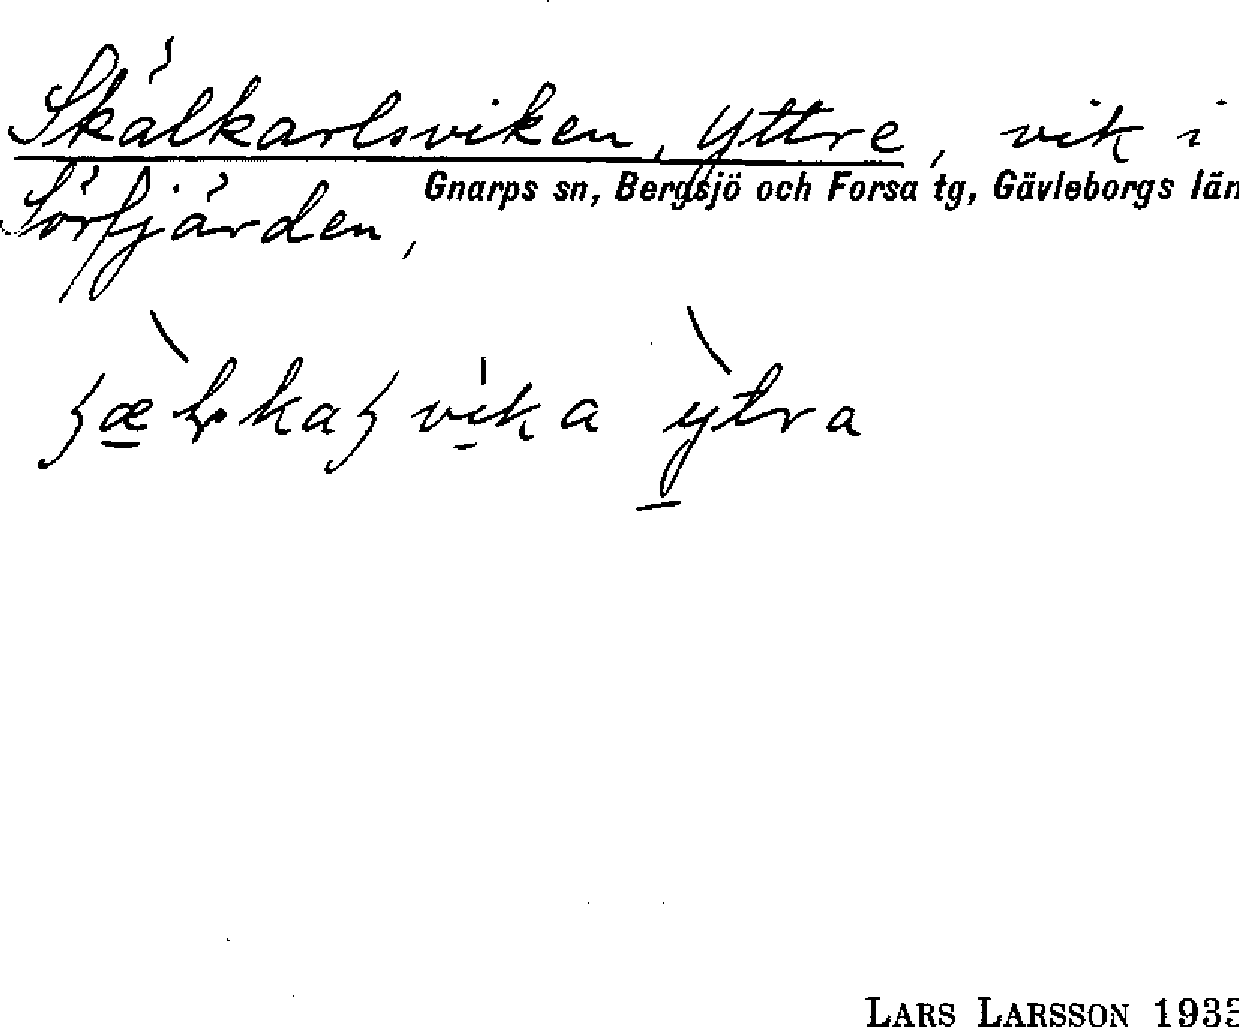 Skälkarlsviken, Yttre, vik i
Gnarps sn, Bergsjö och Forsa tg, Gävleborgs län
Sörfjärden,
vika ytra
LARS LARSSON 1935